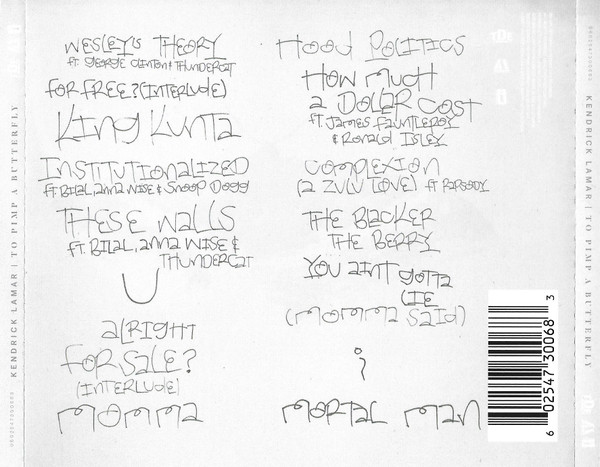 WESLEY's THEORY
ft. GEORGE CLINTON & THUNDERCAT
FOR FREE? (INTERLUDE)
KING KUNTA
INSTITUTIONALIZED
ft. BILAL, anna WISE & SNOOP DOGG
THESE WALLS
ft. BILAL, anna WISE &
THUNDERCAT
U
alRIGHT
FOR SALE?
(INTERLUDE)
MOMMA
HOOD POLITICS
HOW MUCH
a DOLLAR COST
ft. JAMES FAUNTLEROY
& RONALD ISLEY
COMPLEXION
(a ZULU LOVE) ft RAPSODY
THE BLACKER
THE BERRY
YOU AINT GOTTA
LIE
(MOMMA SAID)
i
MORTAL MAN
6 02547 30068 3
KENDRICK LAMAR | TO PIMP A BUTTERFLY
KENDRICK LAMAR | TO PIMP A BUTTERFLY